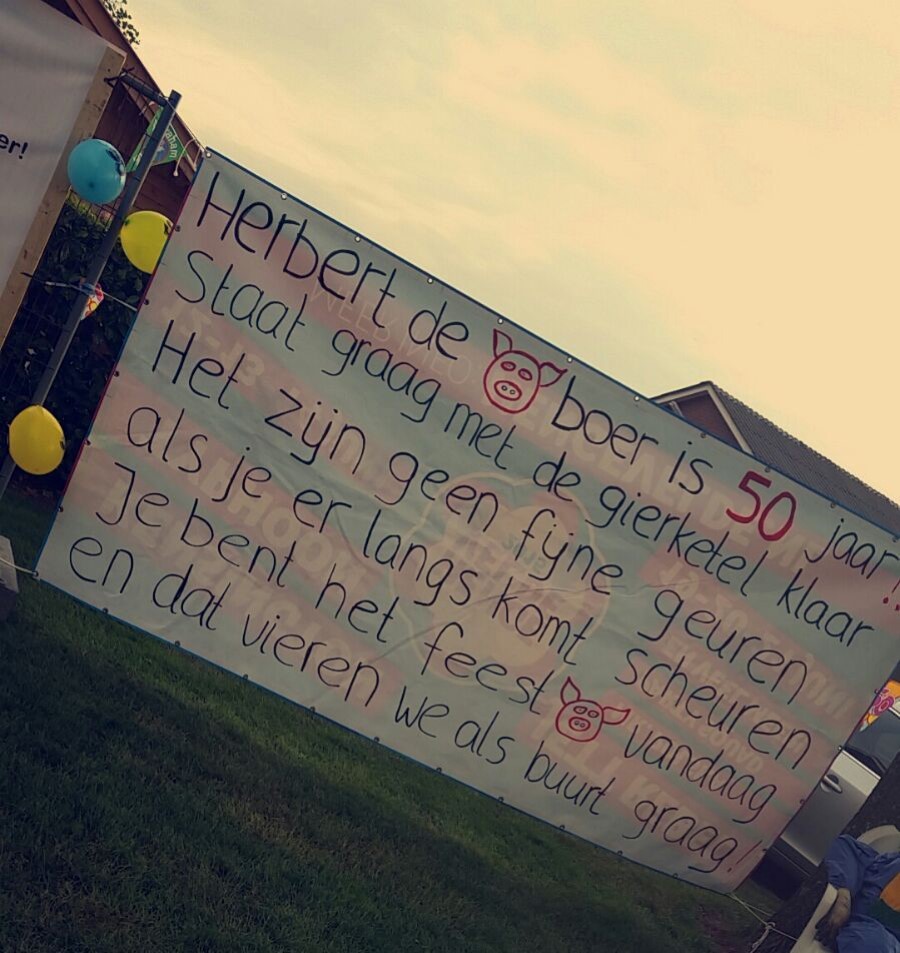 er!
Herbert de boer is 50 jaar!!
Staat graag met de gierketel klaar
Het zijn geen fijne geuren
als je er langs komt scheuren
Je bent het feest vandaag
en dat vieren we als buurt graag!